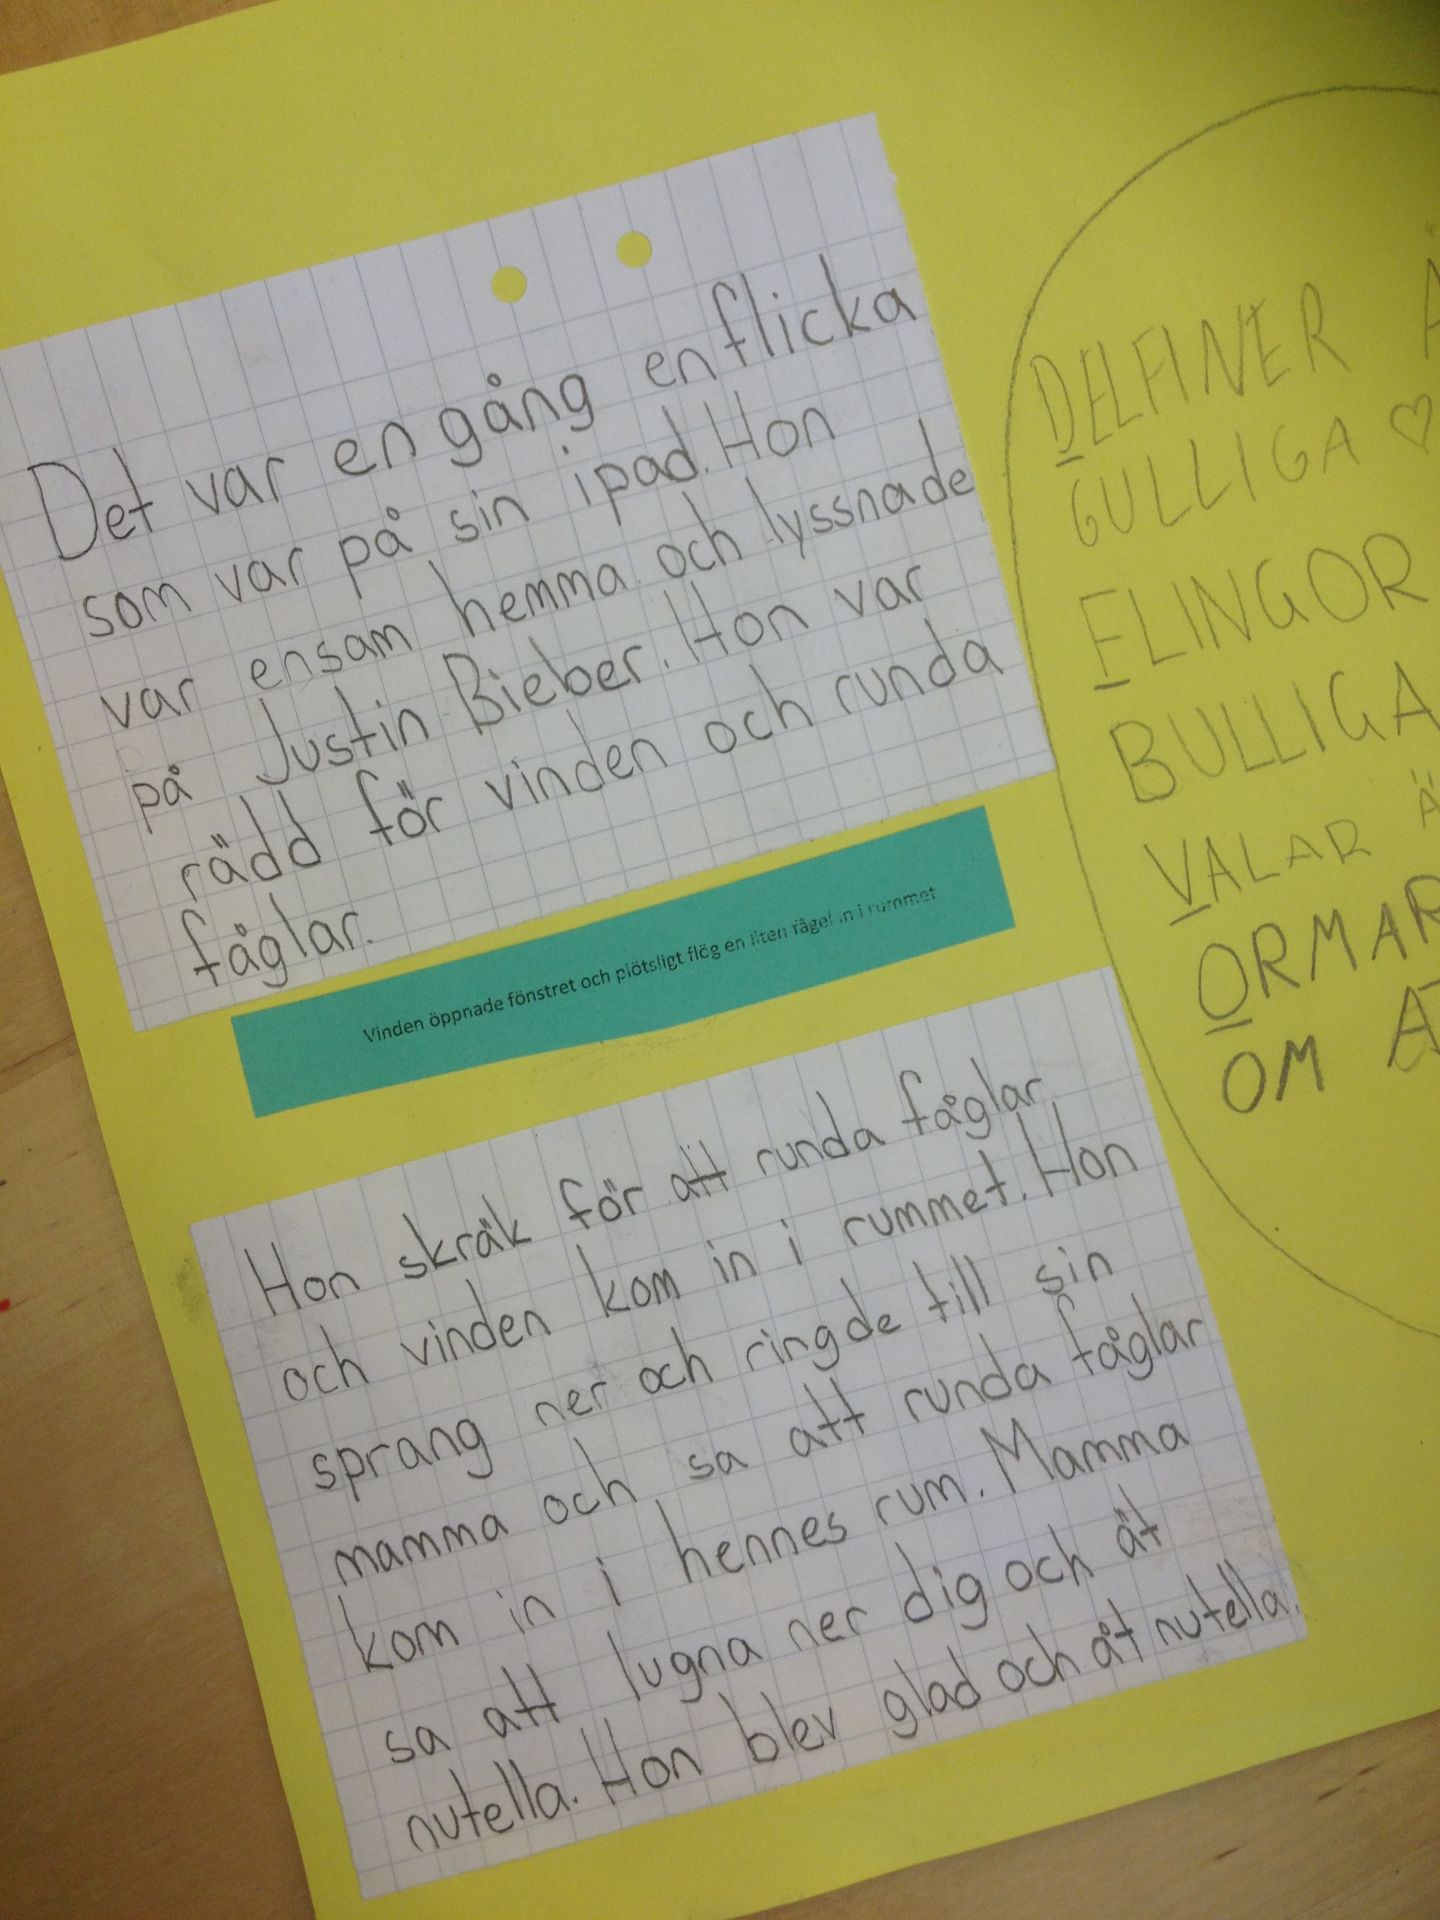 Det var en gång en flicka
som var på sin ipad. Hon
var ensam hemma och lyssnade
på Justin Bieber. Hon var
rädd för vinden och runda
fåglar.
Vinden öppnade fönstret och plötsligt flög en liten fågel in i rummet
Hon skräk för att runda fåglar
och vinden kom in i rummet. Hon
sprang ner och ringde till sin
mamma och sa att runda fåglar
kom in i hennes rum. Mamma
sa att lugna ner dig och ät
nutella. Hon blev glad och åt nutella.
DELFINER
GULLIGA ♡
FLINGOR
BULLIGA
VALAR
ORMAR
OM